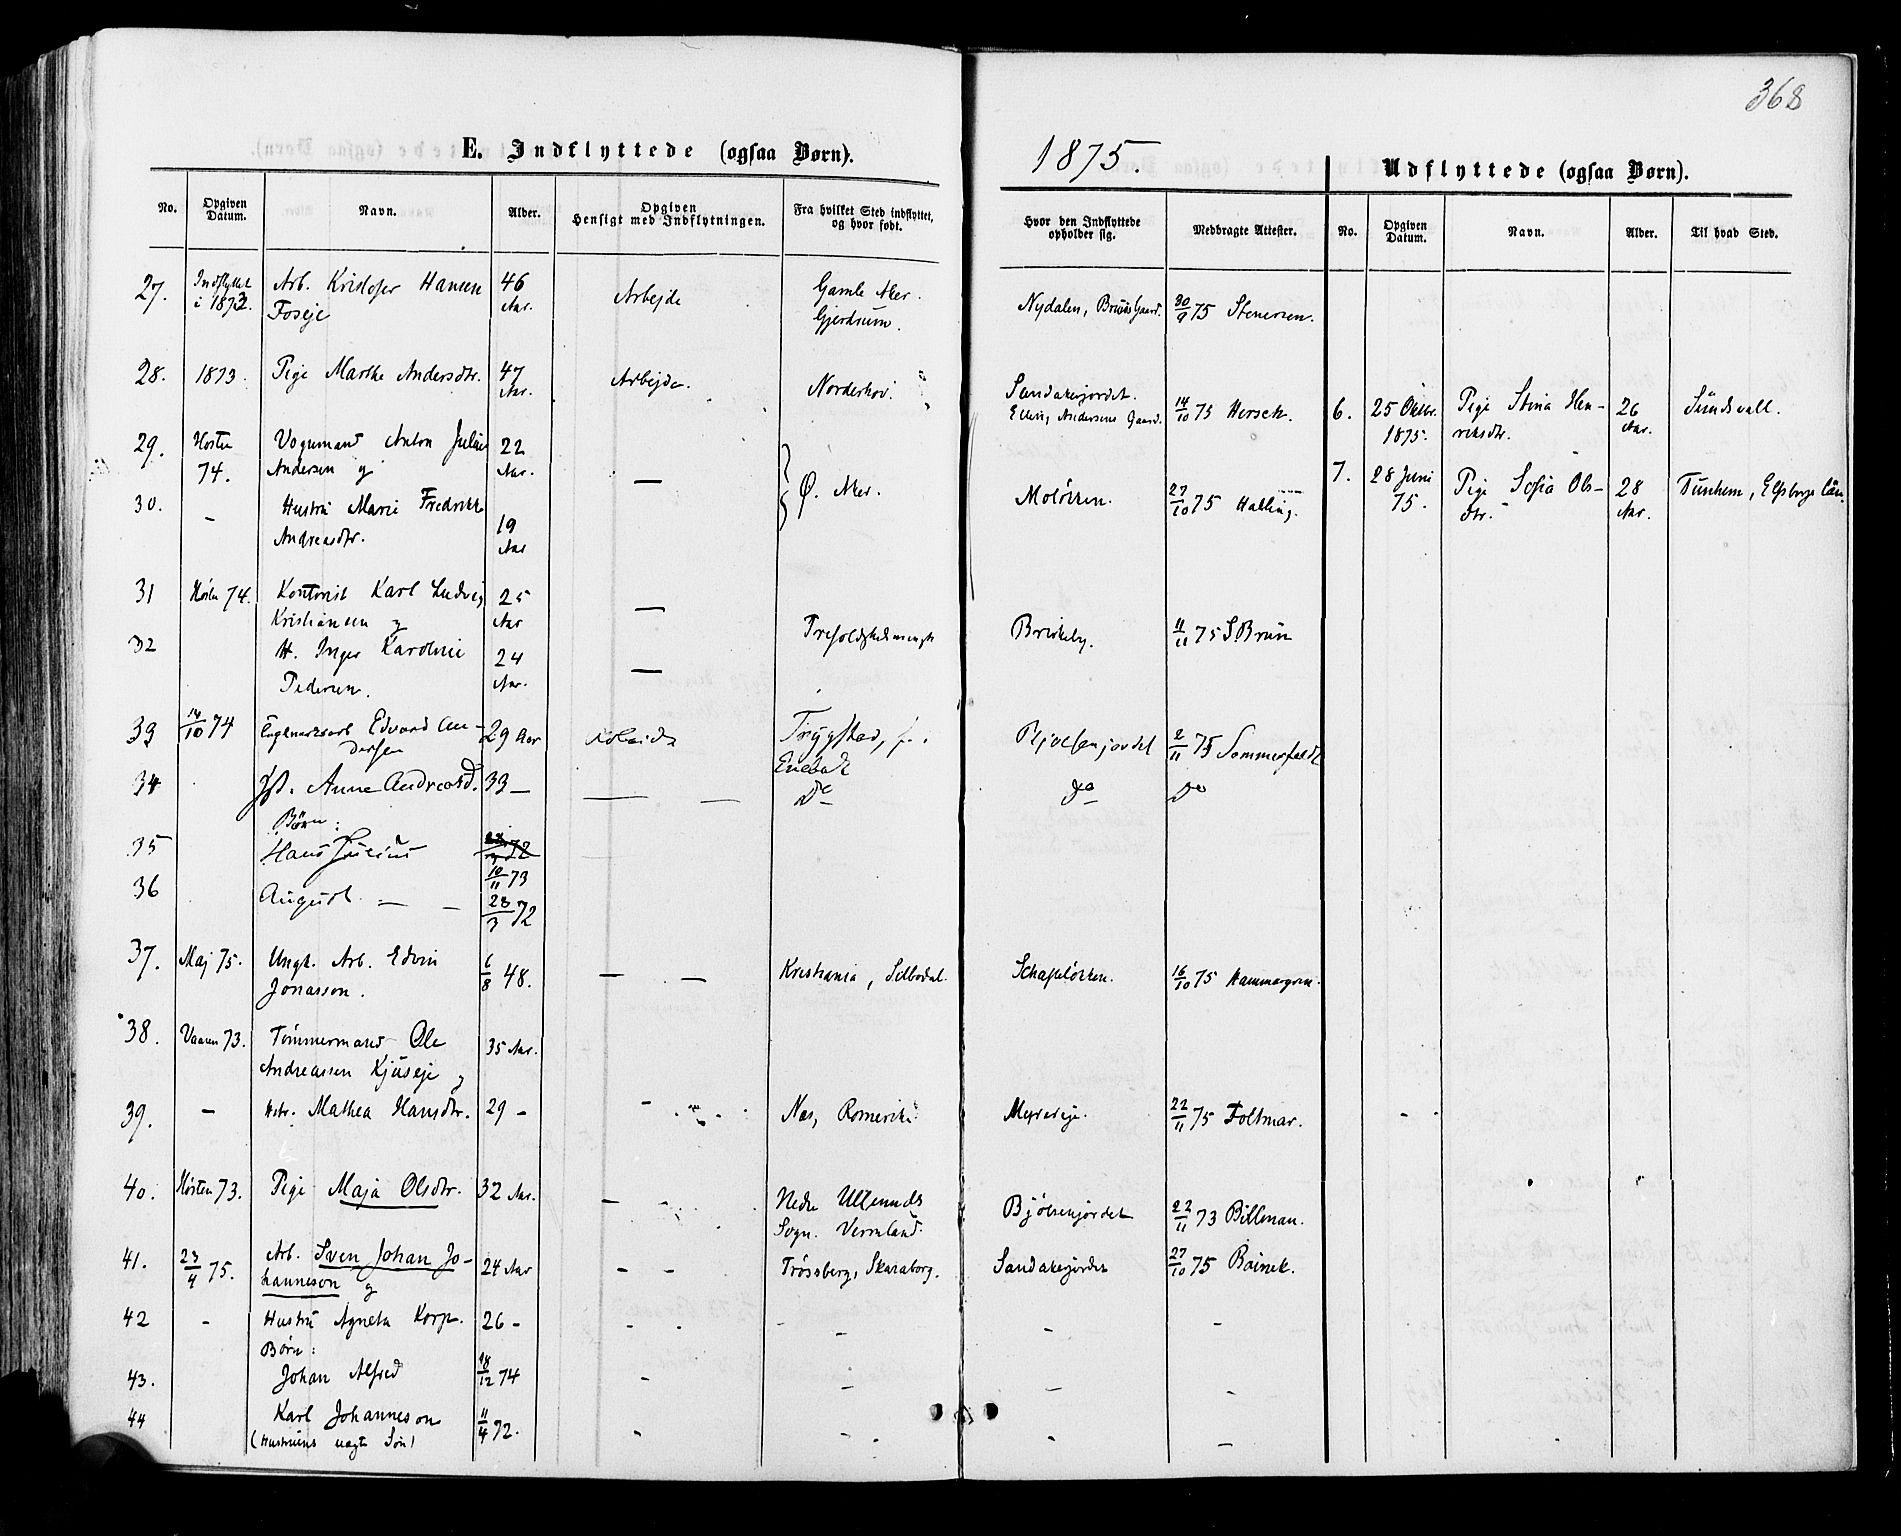 368
E. Indflyttede (ogsaa Børn).
1875.
Udflyttede (ogsaa Børn).
No. Opgiven Datum. Navn. Alder. Opgiven Hensigt med Indflytningen. Fra hvilket Sted indflyttet, og hvor født. Hvor den Indflyttede opholder sig. Medbragte Attester. No. Opgiven Datum. Navn. Alder. Til hvad Sted.
27. Indflyttet Arb. Kristofer Hansen 46 Arbejde Gamle Aker. Nydalen, Bruus Gaard. 30/9 75 Stenersen.
i 1872. Foseje Aar. Gjerdrum.
28. 1873. Pige Marthe Andersdtr. 47 Aar. Arbejde. Norderhov. Sandakerjordet.
Ellin, Andersens Gaard. 14/10 75 Hersek.
6. 25 Oktbr. 1875. Pige Stina Hen-
riksdtr. 26 Aar. Sundsvall.
29. Høsten Vognmand Anton Julius 22
74. Andersen og Aar. — Ø. Aker. Moløkken. 27/10 75 Halling.
7. 28 Juni 75. Pige Sofia Ols-
dtr. 28 Aar. Tunhem, Elfsborgs Län.
30. - Hustru Marie Fredrikke
Andreasdtr. 19 Aar
31 Høsten 74. Kontorist Karl Ludvig 25
Kristiansen og Aar — Trefoldighedsmenigh Birkeby. 11/11 75 S Brun
32 H. Inger Karoline 24
Pedersen. Aar. —
33 14/10 74 Edvard An-
dersen 29 Aar Arbeide Trygstad, f. Bjølsenjordet 2/11 75 Sommerfeldt
Enebak
34 Hst. Anne Andreasd. 33 — — — Do do Do
Børn:
35 Hans Julius 10/11 73
36 August — — 28/3 72
37. Maj 75. Ungk. Arb. Edvin 6/8 48. — — Kristiania, Silbodal. Schafteløkken. 16/10 75 Hammargren.
Jonasson.
38. Vaaren 73. Tømmermand Ole 35 Aar.
Andreassen Kjuseje og
39. — Hstr. Mathea Hansdtr. 29 - - Nes, Romerike Myrereje. 22/11 75 Foltmar.
40. Høsten 73. Pige Maja Olsdtr. 32 Aar. - - Nedre Ulleruds Bjølsenjordet 22/11 73 Billman.
Sogn. Vermland.
41. 23/4 75. Arb. Sven Johan Jo- 24 Aar - - Trössberg, Skaraborg. Sandakerjordet 27/10 75
hanneson og
42 - Hustru Agneta Korp. 26 - - - - - -
Børn:
43. Johan Alfred 18/12 74 - - - -
44 Karl Johanneson 11/4 72. - - - - -
(Hustruens uægte Søn)